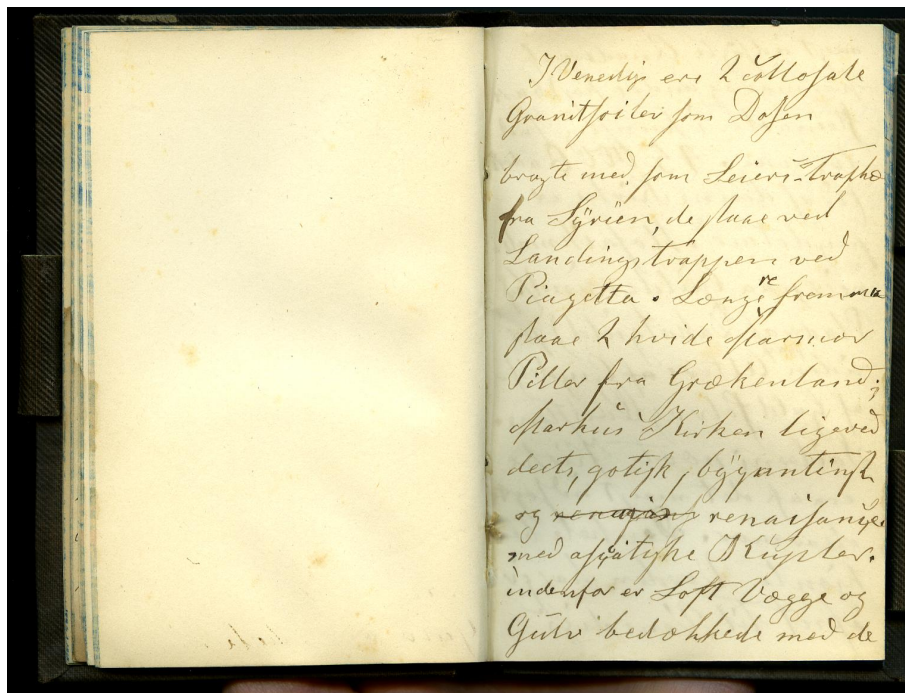 I Venedig ere 2 collosale
Granitsoiler som Dosen
bragte med som Seiers-Trophæ
fra Syrien, de staae ved
Landingstrappen ved
Piazetta. Længere fremme
staae 2 hvide Marmor
Piller fra Grækenland;
Markus Kirken ligeved
deels, gotisk, byzantinsk
og renaisance
med asiatiske Kupler.
indenfor er Loft Vægge og
Gulv bedækkede med de